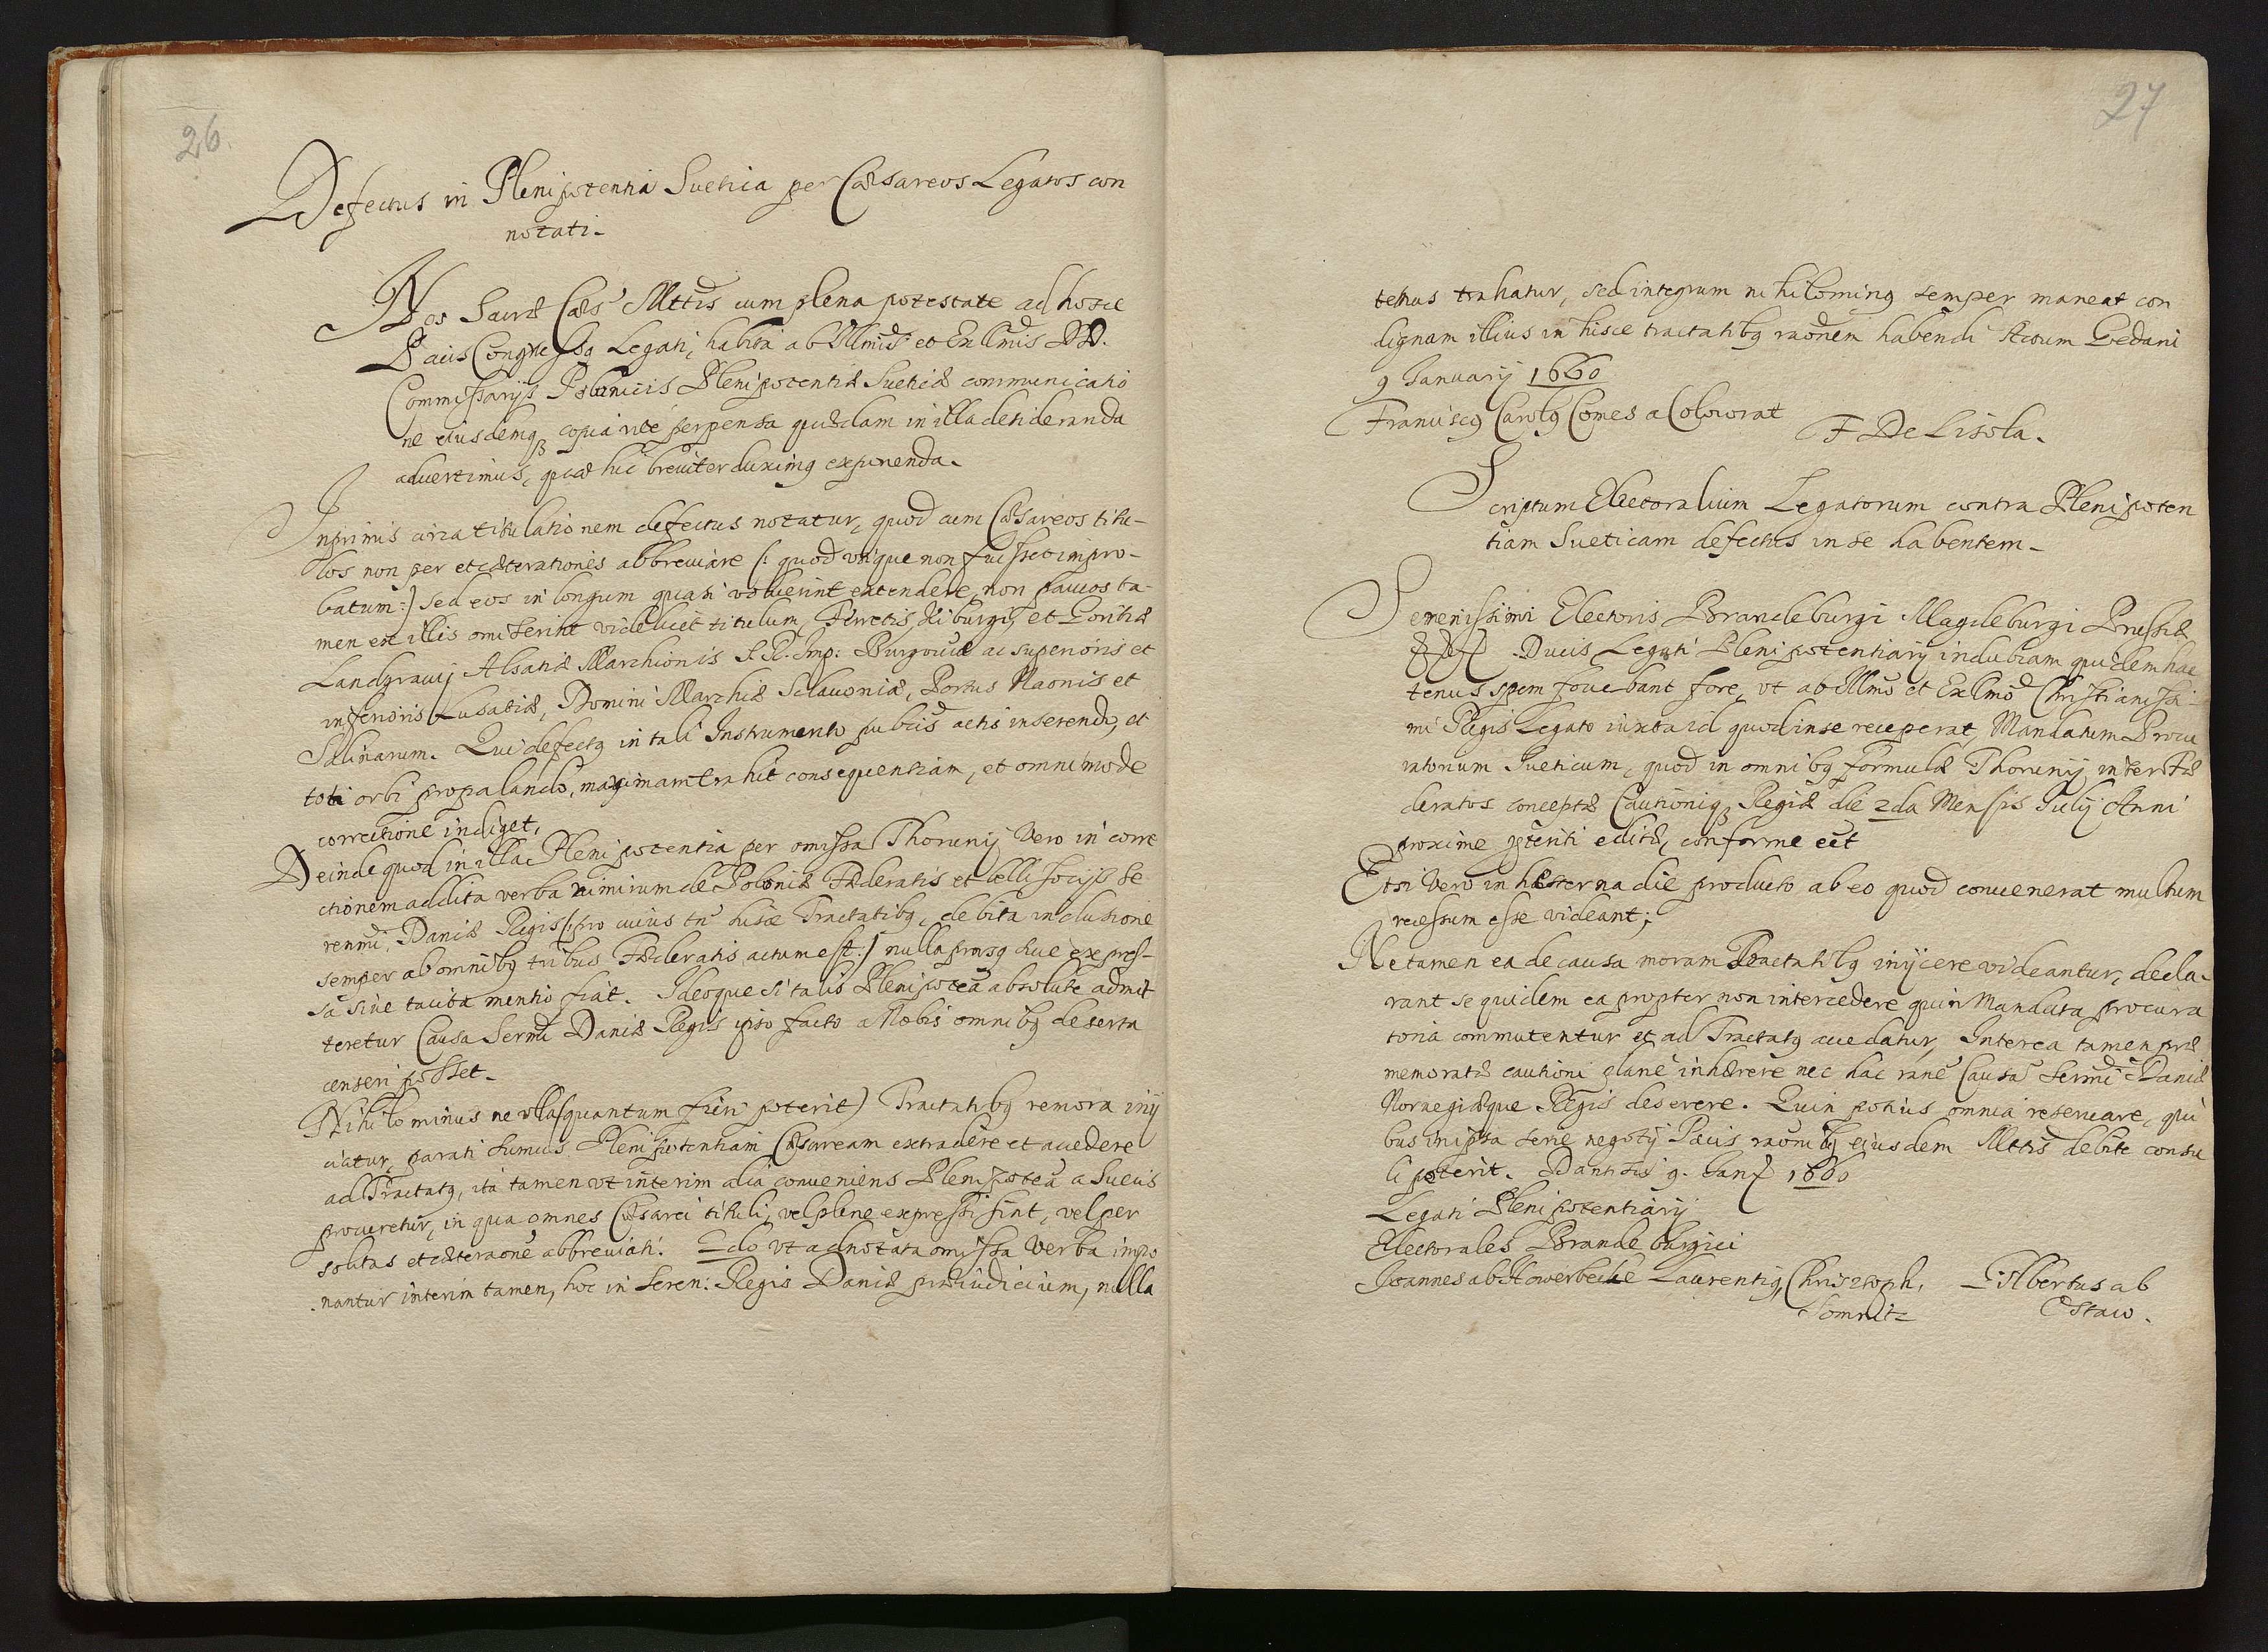 26.
Defectus in Plenipotentia Suetica per Cæsareos Legatos con
notati.
Nos Sacræ Cæs: Mttis cum plena potestate ad hosce
Pacis Congressq Legati, habita ab Illmis et Exllmis DD.
Commissarijs Polonicis Plenipotentiæ Sueticæ communicatio
ne eiusdemq copia rité perpensa quædam in illa desideranda
advertimus, quæ hic breviter duximq exponenda.
Inprimis circa titulationem defectus notatur, quod cum Cæsareos titu-
los non per etcæterationes abbreviare (: quod utique non fuisset impro-
batum:) sed eos in longum quasi voluerint extendere, non paucos ta-
men ex illis omiserint videlicet titulum, Ferretis, Kiburgi, et Goritiæ
Landgravij Alsatiæ Marchionis S. R. Imp: Burgoviæ ac superioris et
inferioris Lusatiæ, Domini Marchiæ Sclavoniæ, Portus Naonis et
Salinarum. Qui defectq in tali Instrumento publicis actis inserendo, et
toti orbi propalando, maximam trahit consequentiam, et omnimode
correctione indiget.
Deinde quod in illa Plenipotentia per omissa Thorunij vero in corre
ctionem addita verba nimirum de Poloniæ Fæderatis et belli socijs se
renmi Daniæ Regis (: pro cuius tn hisce Tractatibq, debita inclusione
semper ab omnibq tribus Fæderatis actum est:) nulla prorsq sive expres-
sa sive tacita mentio fiat. Ideoque si talis Plenipotea absolute admit
teretur Causa Sermi Daniæ Regis ipso facto a Nobis omnibq deserta
censeri posset.
Nihilominus ne ulla (quantum fieri poterit) Tractatibq remora inij
ciatur, parati sumus Plenipotentiam Cæsaream extradere et accedere
ad Tractatq, ita tamen ut interim alia conveniens Plenipotea a Suecis
procuretur, in qua omnes Cæsarei tituli, vel plene expressi sint, vel per
solitas etcæteraone abbreviati. 2do ut adnotata omissa verba impo
nantur interim tamen, hoc in Seren: Regis Daniæ præiudicium, nulla
27
tenus trahatur, sed integrum nihilominq semper maneat con
dignam illius in hisce tractatibq raonem habendi Actum Gedani
9 January 1660
Franciscq Carolq Comes a Colowrat
F De Lisola.
Scriptum Electoralium Legatorum contra Plenipoten
tiam Sueticam defectus in se habentem.
Serenissimi Electoris Brandeburgi Magdeburgi Prussiæ
Ducis Legati Plenipotentiarij indubiam quidem hac
tenus spem fovebant fore, ut ab Illmo et Exllmo Christianissi-
mi Regis Legato iuxta id quod in se receperat, Mandatum Procu
ratorium Sueticum, quod in omnibq formulæ Thorunij inter fæ
deratos conceptæ Cautioniq Regiæ die 2da Mensis Julij Anni
proxime pteriti editæ, conforme eet
Etsi vero in hesterna die producto ab eo quod convenerat multum
recessum esse videant;
Ne tamen ea de causa moram Tractatibq inijcere videantur, decla-
rant se quidem ea propter non intercedere quin Mandata procura
toria commutentur et ad Tractatq accedatur, Interea tamen præ
memoratæ cautioni plane inhærere nec hac rane Causa Sermi Daniæ
Norvegiæque Regis deserere. Quin potius omnia reservare, qui
bus in ipsa serie negotij Pacis raonibq ejusdem Mttis debite consu
li poterit. Dantisci 9. Jan 1660
Legati Plenipotentiarij
Electorales Brandeburgici
Joannes ab Howerbecke Laurentiq, Christoph,
Somnitz
Gilbertus ab
Ostaw.